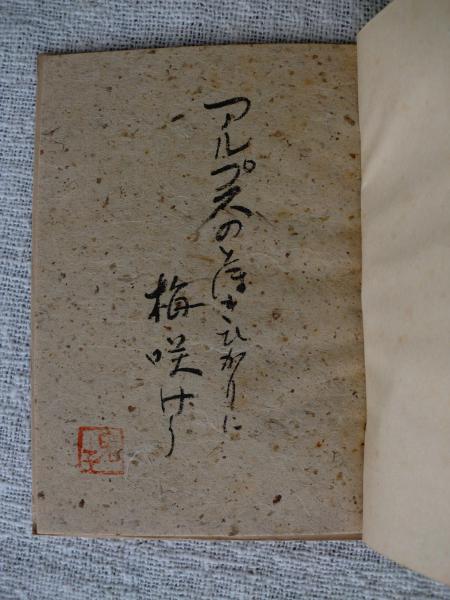 アルプスのとほきひかりに
梅咲けり